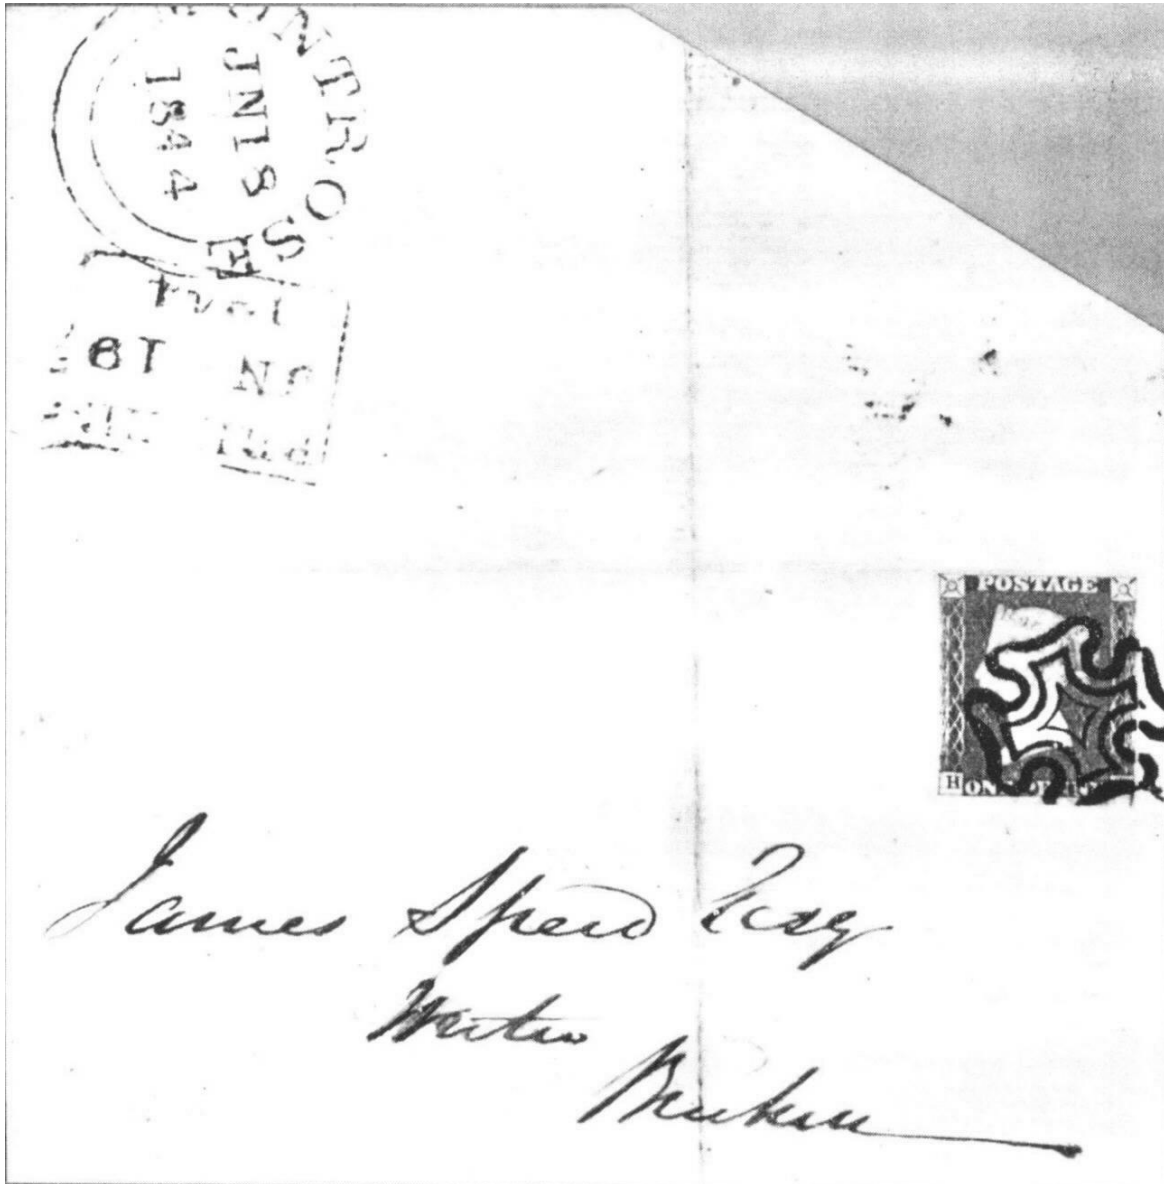 MONTROSE
JN 18
1844
1844
JN 19
POSTAGE
H ONE
James Speid Esq
Writer
Brechin